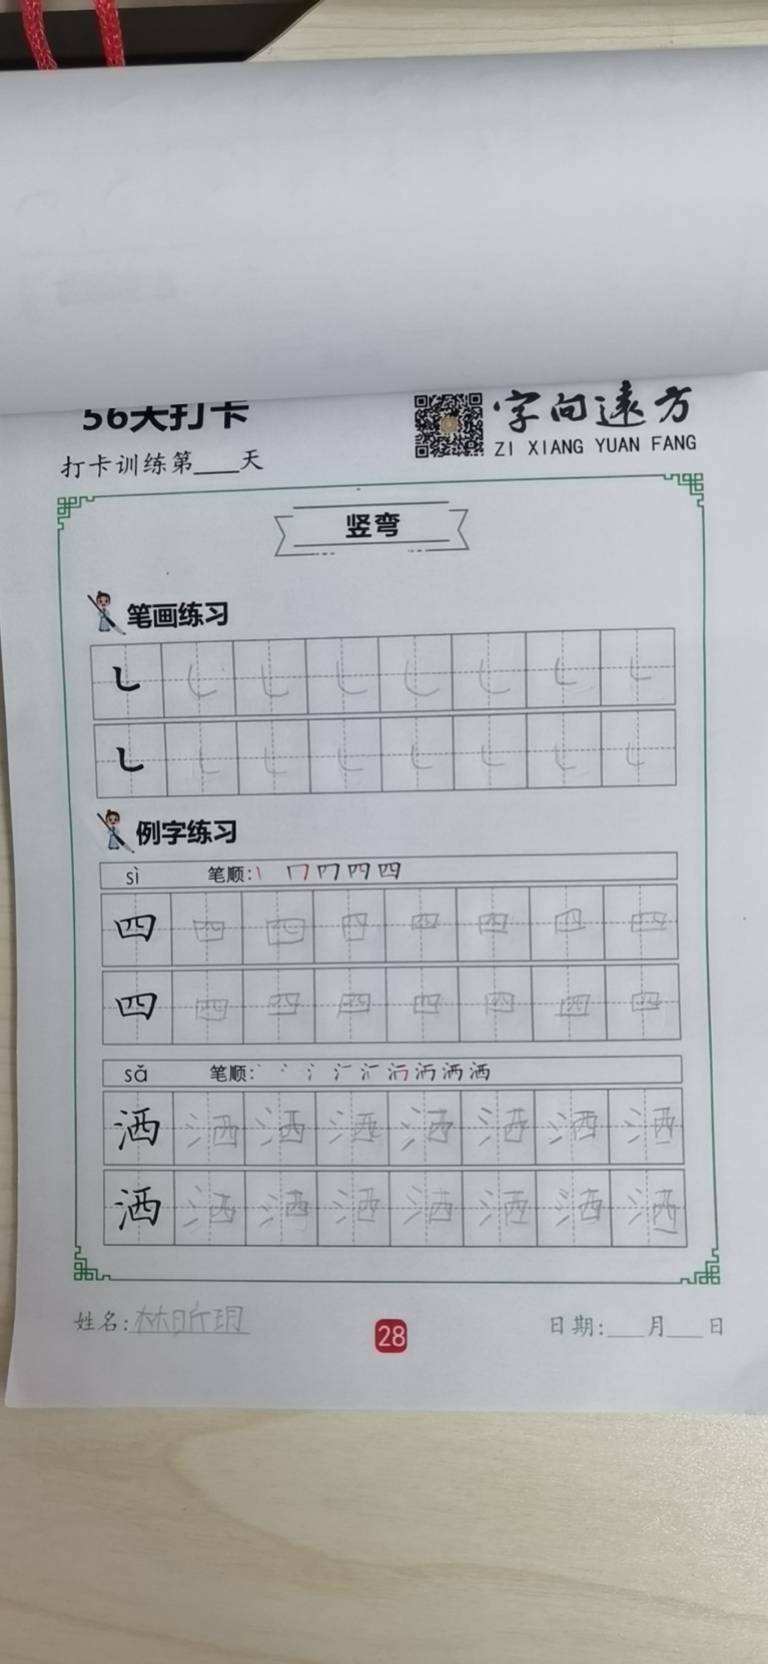 56天打卡
字向远方
ZI XIANG YUAN FANG
打卡训练第____天
竖弯
笔画练习
㇄ ㇄ ㇄ ㇄ ㇄ ㇄ ㇄ ㇄
㇄ ㇄ ㇄ ㇄ ㇄ ㇄ ㇄ ㇄
例字练习
sì 笔顺:
四 四 四 四 四 四 四 四
四 四 四 四 四 四 四 四
sǎ 笔顺:
洒 洒 洒 洒 洒 洒 洒 洒
洒 洒 洒 洒 洒 洒 洒 洒
姓名:林昕玥
28
日期:___月___日